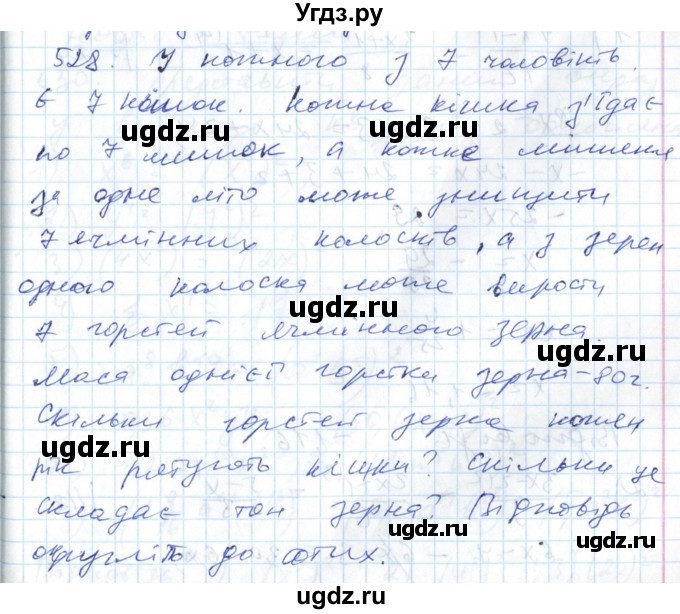 Угдз.ру
528. У кожного з 7 чоловіків
є 7 кішок. Кожна кішка з'їдає
ugdz.ru ugdz.ru
по 7 мишок, а кожне мишеня
за одне літо може знищити
ugdz.ru
7 ячмінних колосків, а з зерен
одного колоска може вирости
ugdz.ru
7 горстей ячмінного зерна.
ugdz.ru
Маса однієї горстки зерна - 80 г.
Скільки горстей зерна кожен
ugdz.ru
рік рятують кішки? Скільки це
складає тон зерна? Відповідь
ugdz.ru ugdz.ru
округліть до сотих.
ugdz.ru